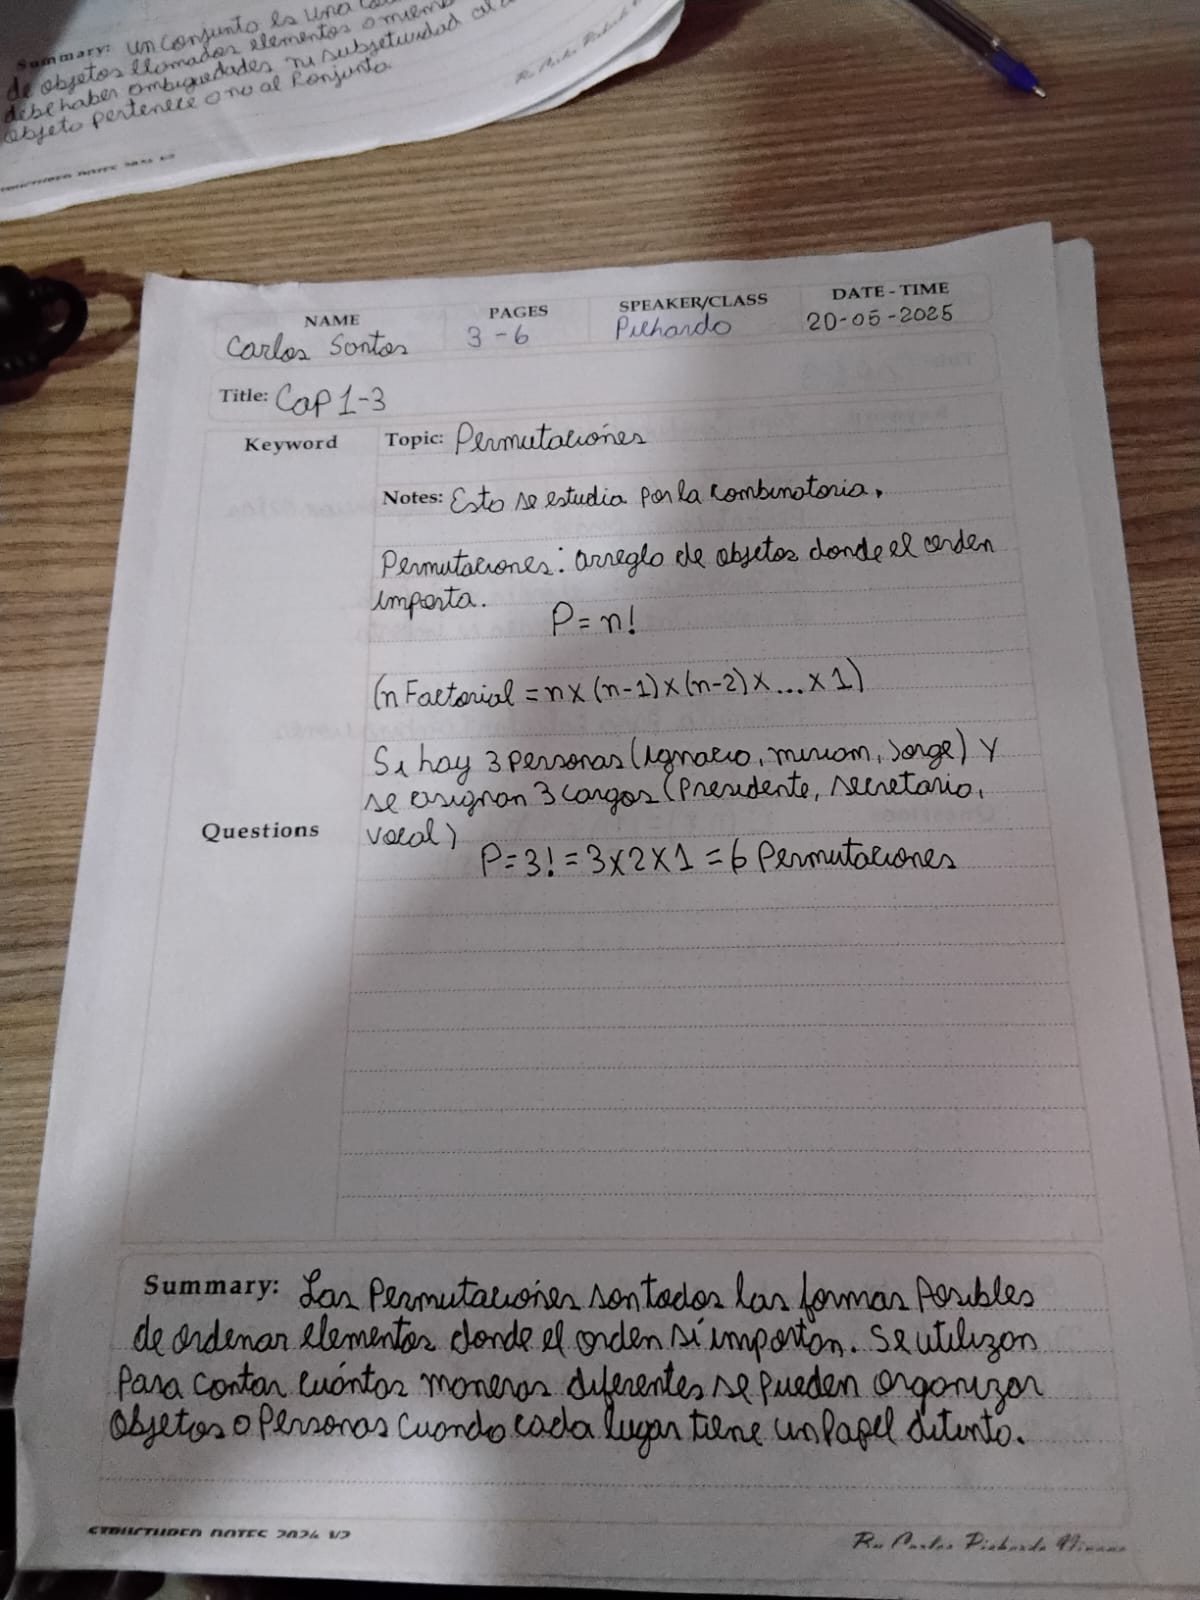 Summary: Un conjunto es una
de objetos llamados elementos o miemb
debe haber ambiguedades ni subjetividad al
objeto pertenece o no al conjunto.
NAME
PAGES
SPEAKER/CLASS
DATE - TIME
Carlos Santos
3 - 6
Pichardo
20-05-2025
Title: Cap 1-3
Keyword
Topic: Permutaciones
Notes: Esto se estudia por la combinatoria.
Permutaciones: arreglo de objetos donde el orden
importa.
P = n!
(n Factorial = n x (n-1) x (n-2) x ... x 1)
Si hay 3 personas (Ignacio, miriam, Jorge) y
se asignan 3 cargos (Presidente, secretario,
vocal)
Questions
P = 3! = 3 x 2 x 1 = 6 Permutaciones
Summary: Las Permutaciones son todas las formas Posibles
de ordenar elementos donde el orden sí importan. Se utilizan
Para contar cuántas maneras diferentes se pueden organizar
objetos o Personas cuando cada lugar tiene un Papel ditinto.
STRUCTURED NOTES 2024 V2